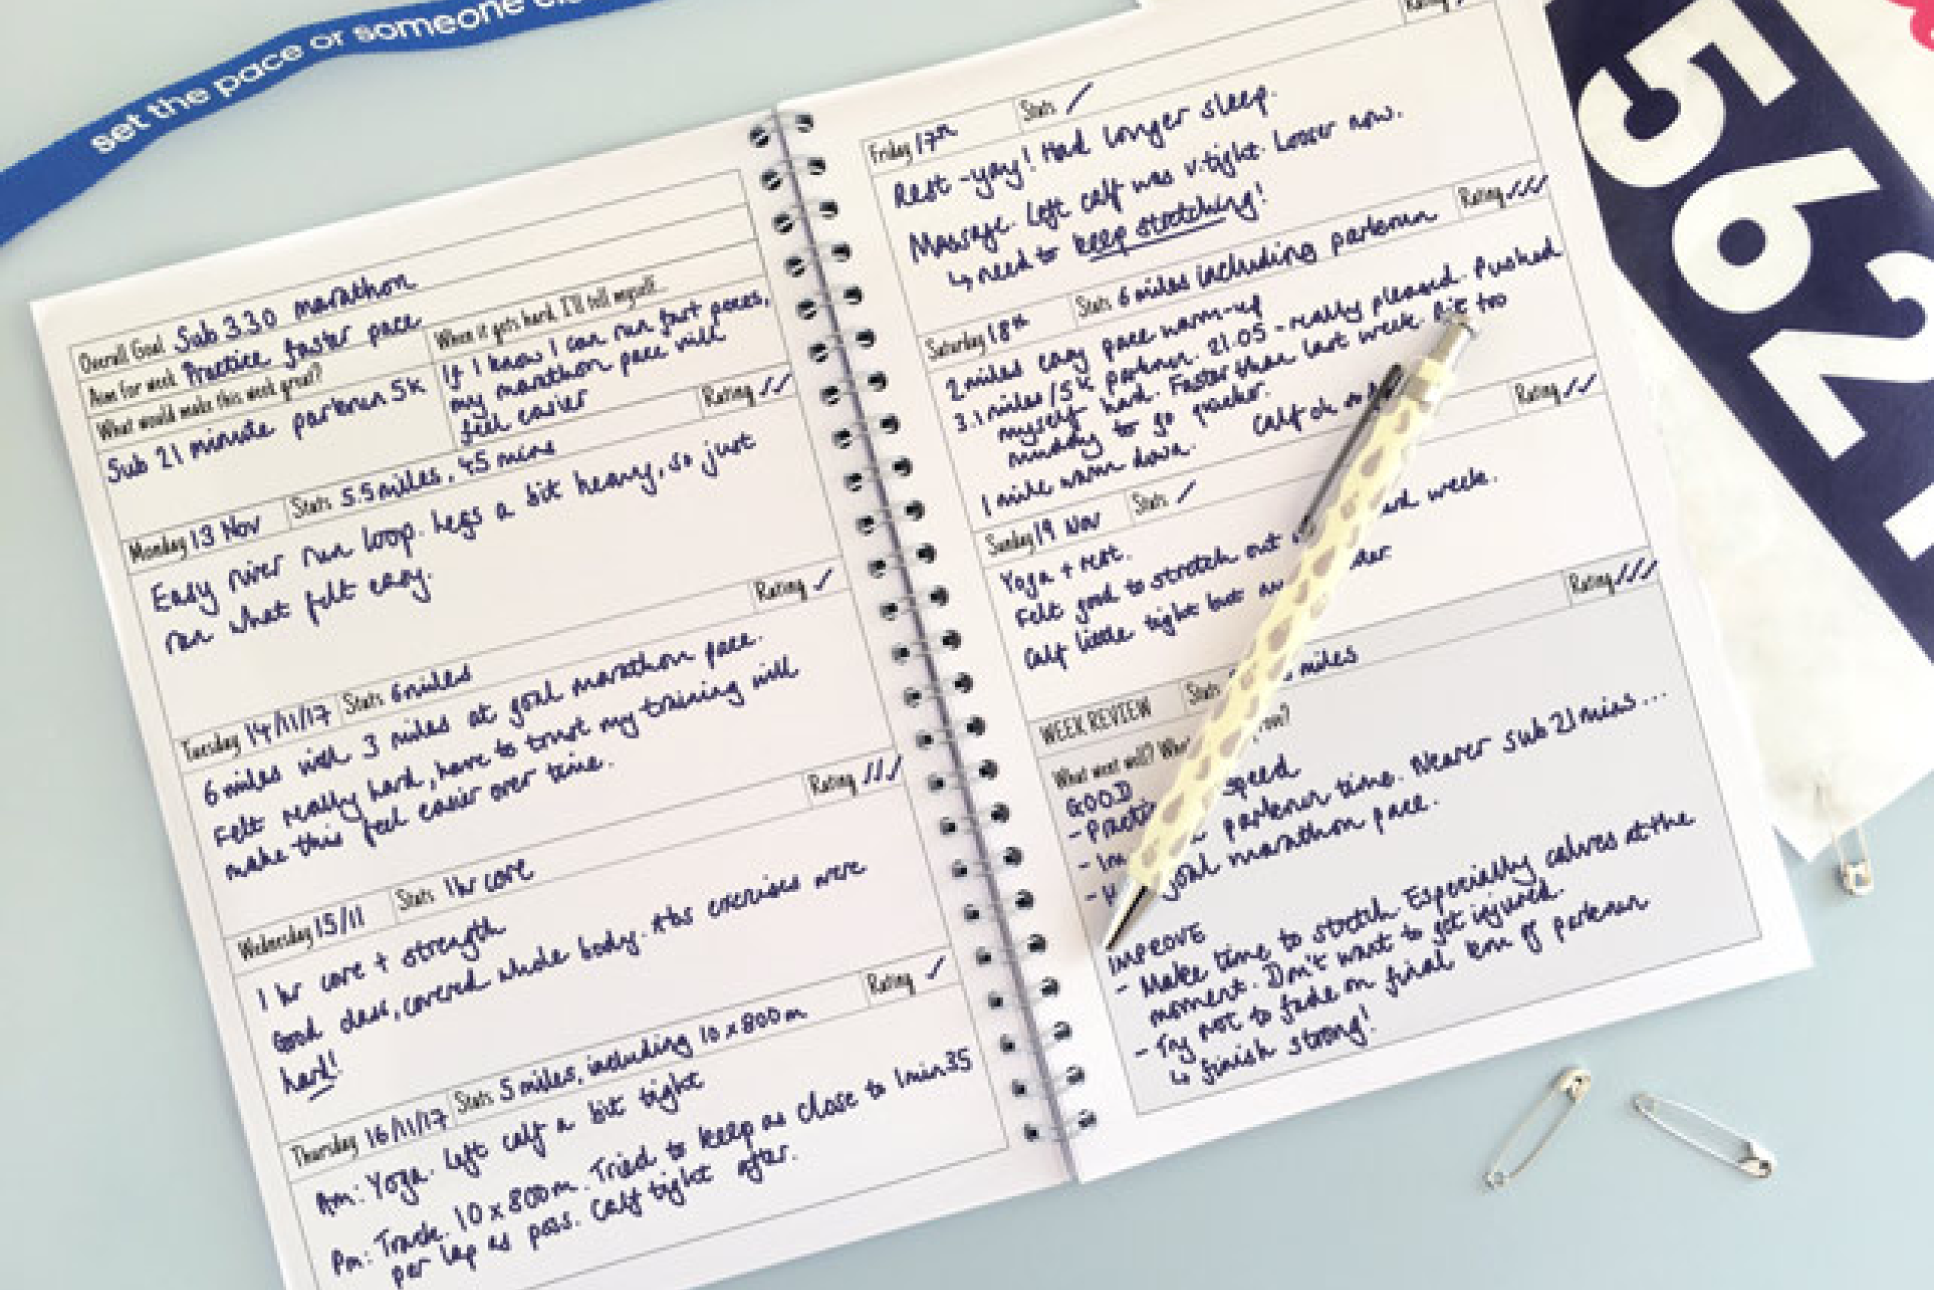 set the pace or someone
Overall Goal Sub 3.30 marathon
Aim for week Practice faster pace
What would make this week great?
Sub 21 minute parkrun 5k
When it gets hard, I'll tell myself...
If I know I can run fast paces,
my marathon pace will
feel easier
Monday 13 Nov Stats 5.5 miles, 45 mins Rating ✓✓
Easy river run loop. Legs a bit heavy, so just
ran what felt easy.
Tuesday 14/11/17 Stats 6 miles Rating ✓
6 miles with 3 miles at goal marathon pace.
Felt really hard, have to trust my training will
make this feel easier over time.
Wednesday 15/11 Stats 1hr core Rating ✓✓✓
1 hr core + strength
Good class, covered whole body. Abs exercises were
hard!
Thursday 16/11/17 Stats 5 miles, including 10 x 800m Rating ✓
Am: Yoga. Left calf a bit tight
Pm: Track. 10 x 800m. Tried to keep as close to 1min35
per lap as poss. Calf tight after.
Friday 17th Stats / Rating
Rest - yay! Had longer sleep.
Massage. Left calf was v. tight. Looser now.
↳ need to keep stretching!
Saturday 18th Stats 6 miles including parkrun Rating ✓✓✓
2 miles easy pace warm-up
3.1 miles/5k parkrun. 21.05 - really pleased. Pushed
myself hard. Faster than last week. Bit too
muddy to go quicker.
1 mile warm down. Calf ok
Sunday 19 Nov Stats / Rating ✓✓
Yoga + rest.
Felt good to stretch out week.
Calf little tight but
WEEK REVIEW Stats miles Rating ✓✓✓
What went well?
GOOD
- speed
- parkrun time. Nearer sub 21 mins...
- goal marathon pace.
IMPROVE
- Make time to stretch. Especially calves at the
moment. Don't want to get injured.
- Try not to fade on final km of parkrun
↳ finish strong!
5621